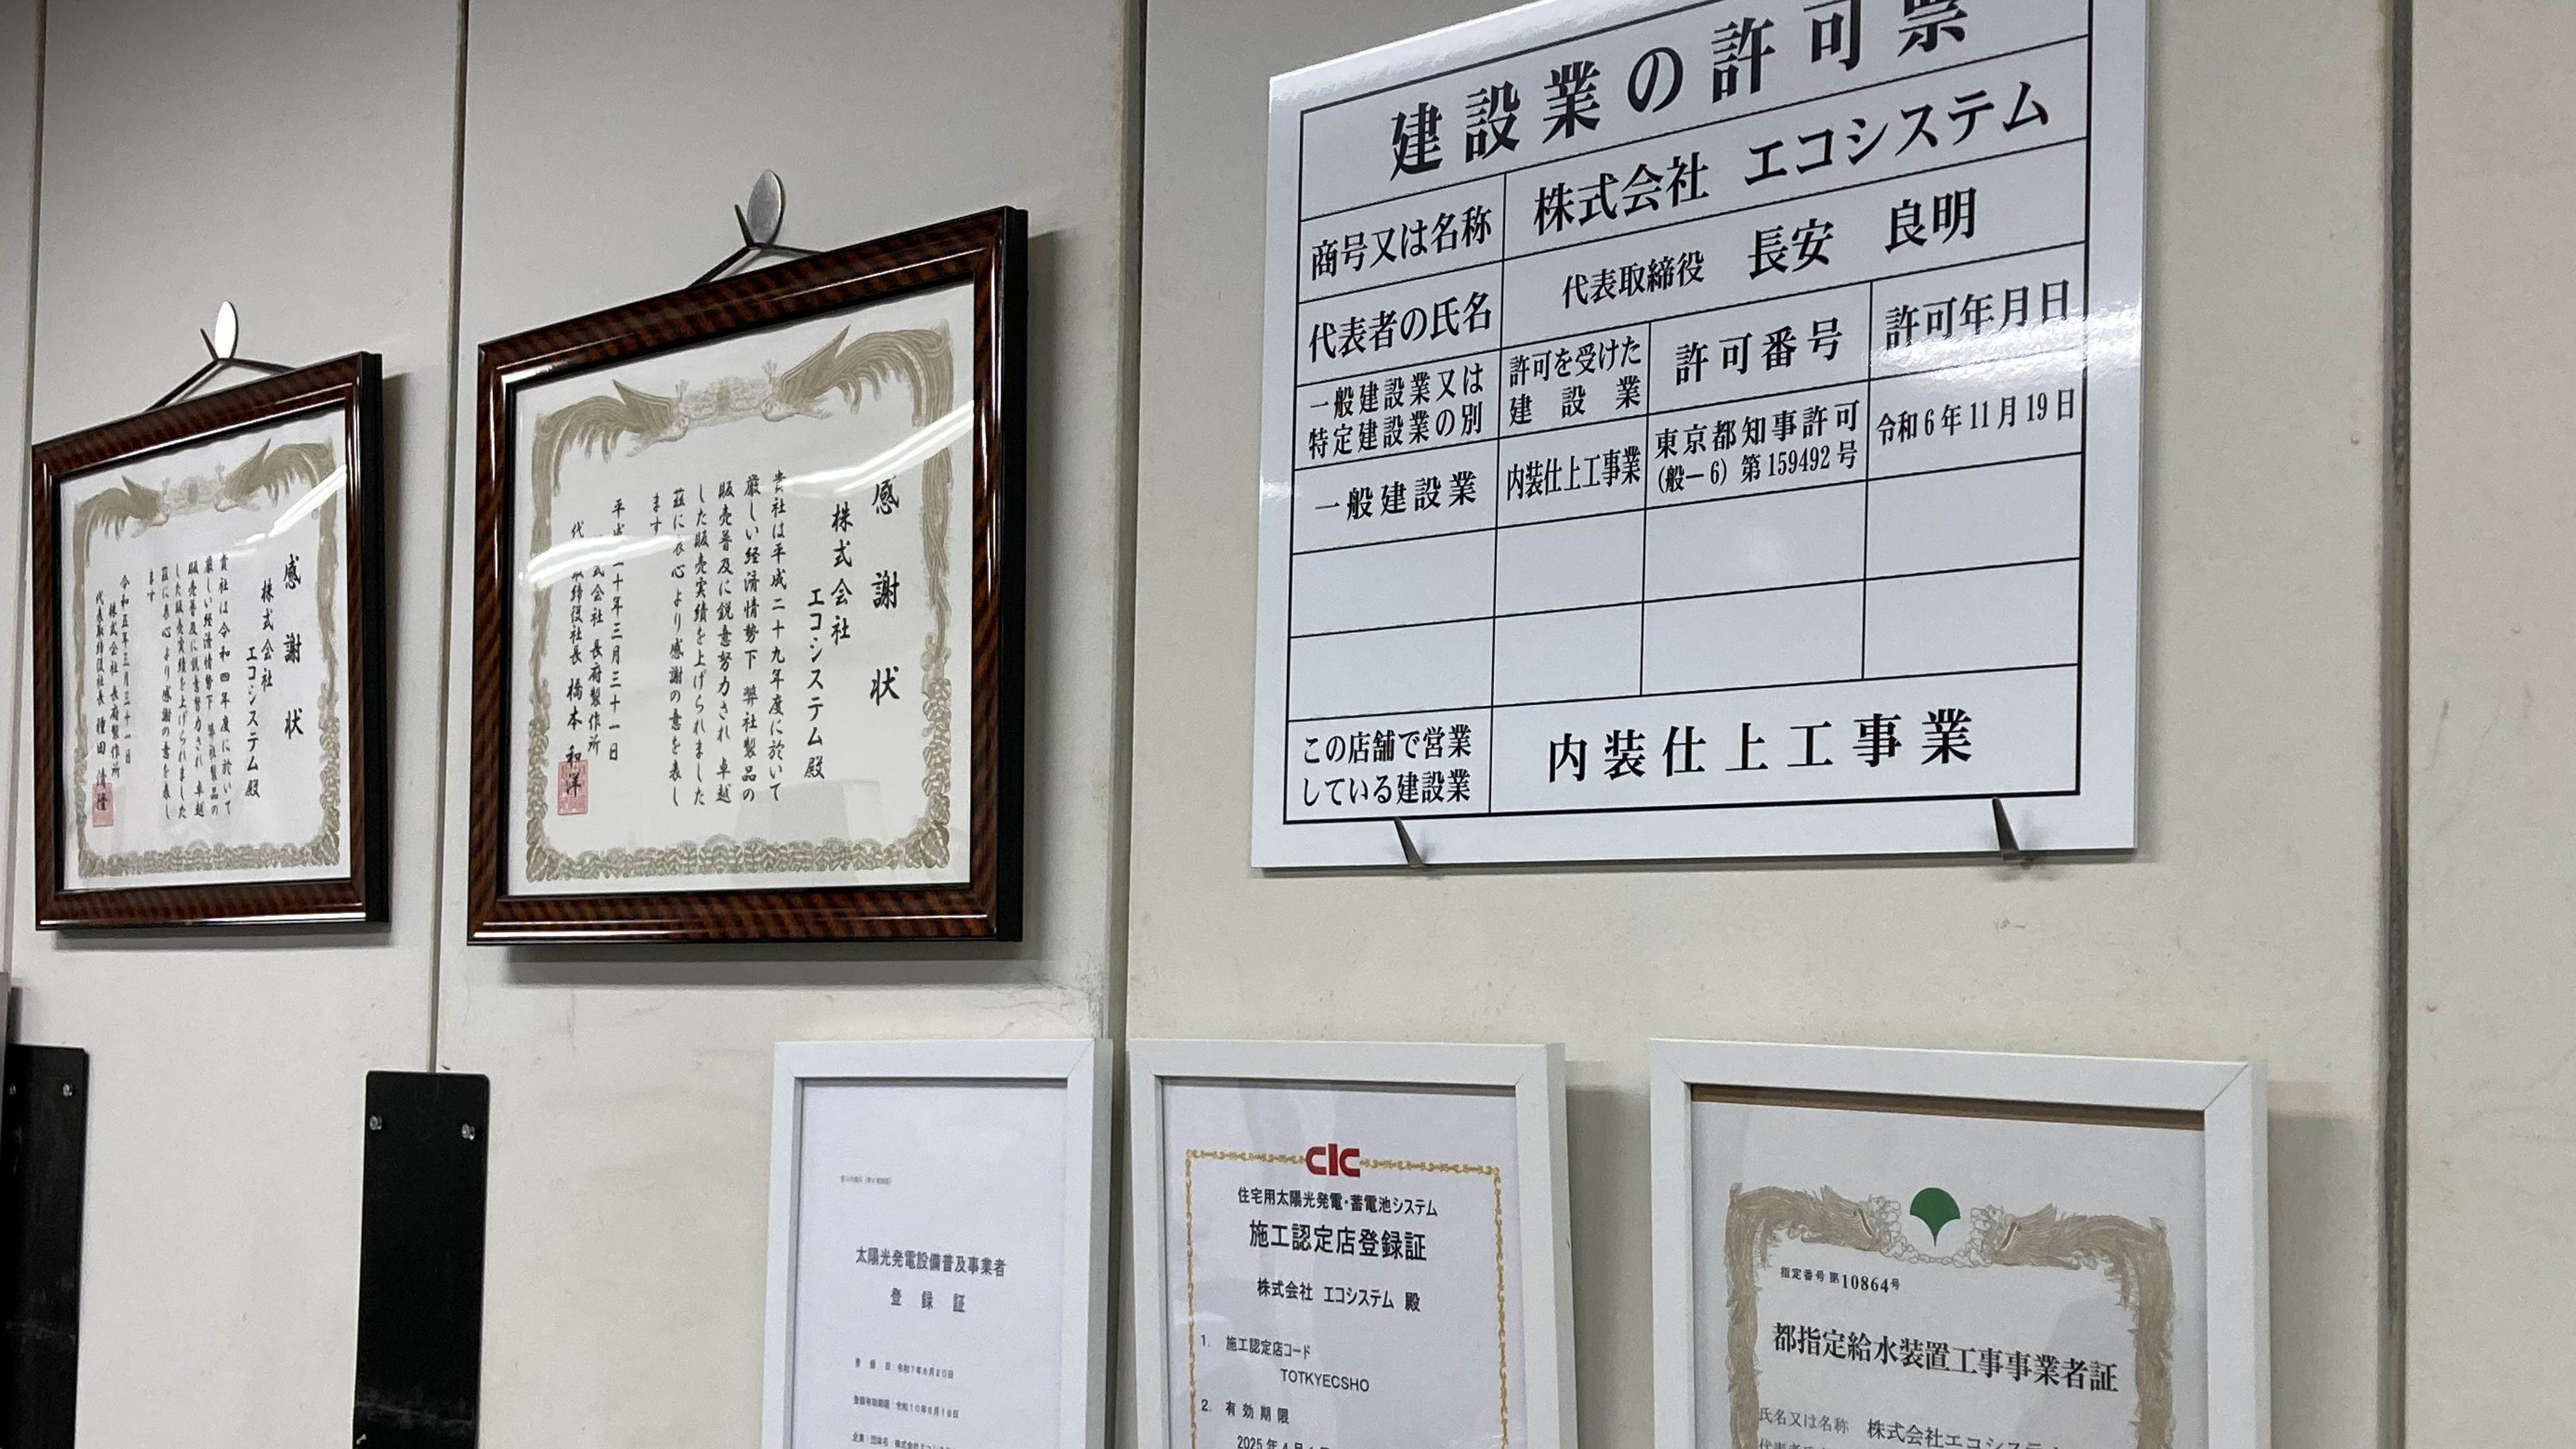 建設業の許可票
商号又は名称
株式会社 エコシステム
代表者の氏名
代表取締役 長安 良明
一般建設業又は
特定建設業の別
許可を受けた
建設業
許可番号
許可年月日
一般建設業
内装仕上工事業
東京都知事許可
(般－6) 第159492号
令和6年11月19日
この店舗で営業
している建設業
内装仕上工事業
感謝状
株式会社
エコシステム殿
貴社は平成二十九年度に於いて
厳しい経済情勢下 弊社製品の
販売普及に鋭意努力され 卓越
した販売実績を上げられました
茲に衷心より感謝の意を表し
ます
十年三月三十一日
式会社 長府製作所
締役社長 橋本 和洋
感謝状
株式会社
エコシステム殿
貴社は令和四年度に於いて
厳しい経済情勢下 弊社製品の
販売普及に鋭意努力され 卓越
した販売実績を上げられました
茲に衷心より感謝の意を表し
ます
令和五年三月三十一日
株式会社 長府製作所
代表取締役社長 種田 清隆
太陽光発電設備普及事業者
登録証
CIC
住宅用太陽光発電・蓄電池システム
施工認定店登録証
株式会社 エコシステム 殿
1. 施工認定店コード
TOTKYECSHO
2. 有効期限
2025年4月
指定番号 第10864号
都指定給水装置工事事業者証
氏名又は名称 株式会社エコシステ